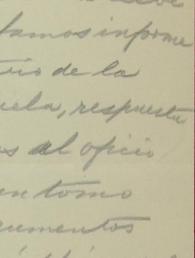 tamos informe
de la
uela, respuesta
os al oficio
en tomo
cumentos